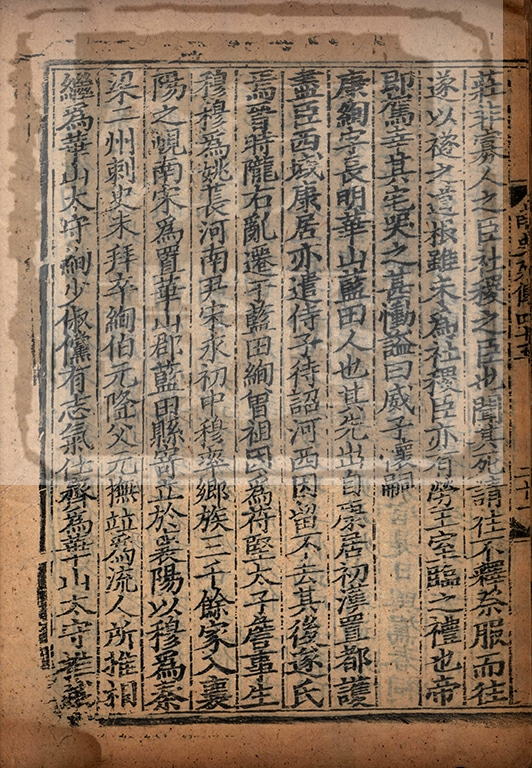 莊非寡人之臣社稷之臣也聞其死請往不釋祭服而往
遂以襚之道根雖未爲社稷臣亦有勞王室臨之禮也帝
即駕幸其宅哭之甚慟謚曰威子懷嗣
康絢字長明華山藍田人也其先出自康居初漢置都護
盡臣西域康居亦遣侍子待詔河西因留不去其後遂氏
焉晉時隴右亂遷于藍田絢曾祖因爲苻堅太子詹事生
穆穆爲姚萇河南尹宋永初中穆率鄉族三千餘家入襄
陽之峴南宋爲置華山郡藍田縣寄立於襄陽以穆爲秦
梁二州刺史未拜卒絢伯元隆父元撫竝爲流人所推相
繼爲華山太守絢少俶儻有志氣仕齊爲華山太守推誠